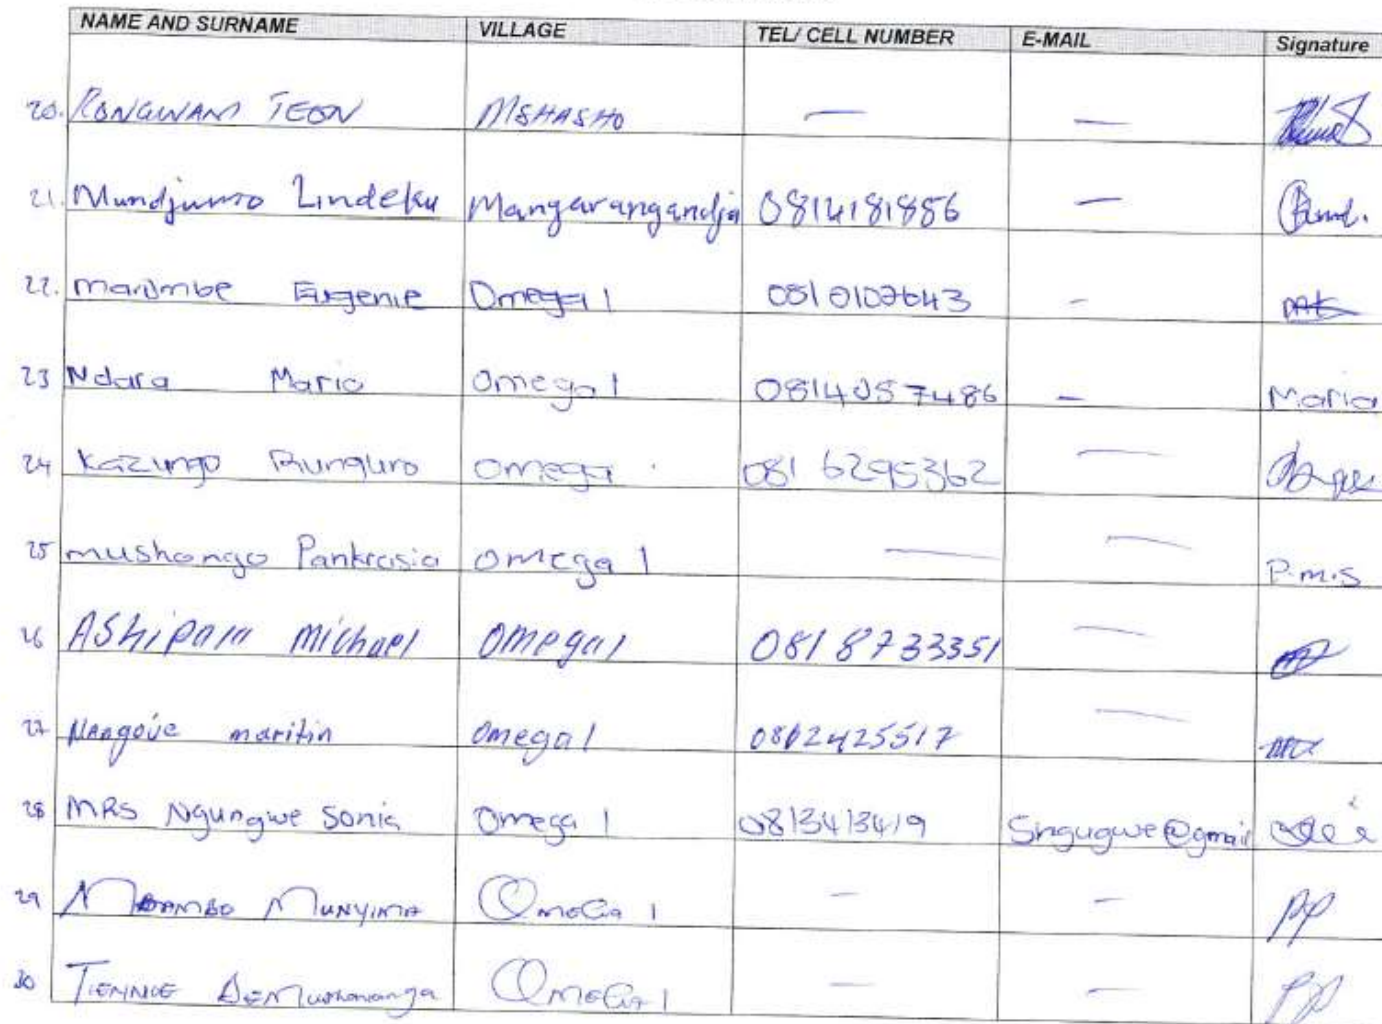 NAME AND SURNAME VILLAGE TEL/ CELL NUMBER E-MAIL Signature
20. RONGWANI TEON MSHASHO — —
21. Mundjumo Lindeku Mangarangandja 0814181886 —
22. Marombe Eugenie Omega 1 -
23 Ndara Maria Omega 1 0814057486 -
24 Kazungo Runguro Omega 081 6295362 —
25 mushongo Pankrasia Omega 1 — — P.m.S
26 Ashipala michael Omega 1 081 8733351 —
27 Nangove maritin Omega 1 0812425517 —
28 MRS Ngungwe Sonia Omega 1 0813413419 Sngugwe@gmail
29 MUNYIMA Omega 1 - - pp
30 TIENNIE Omega 1 — — pp